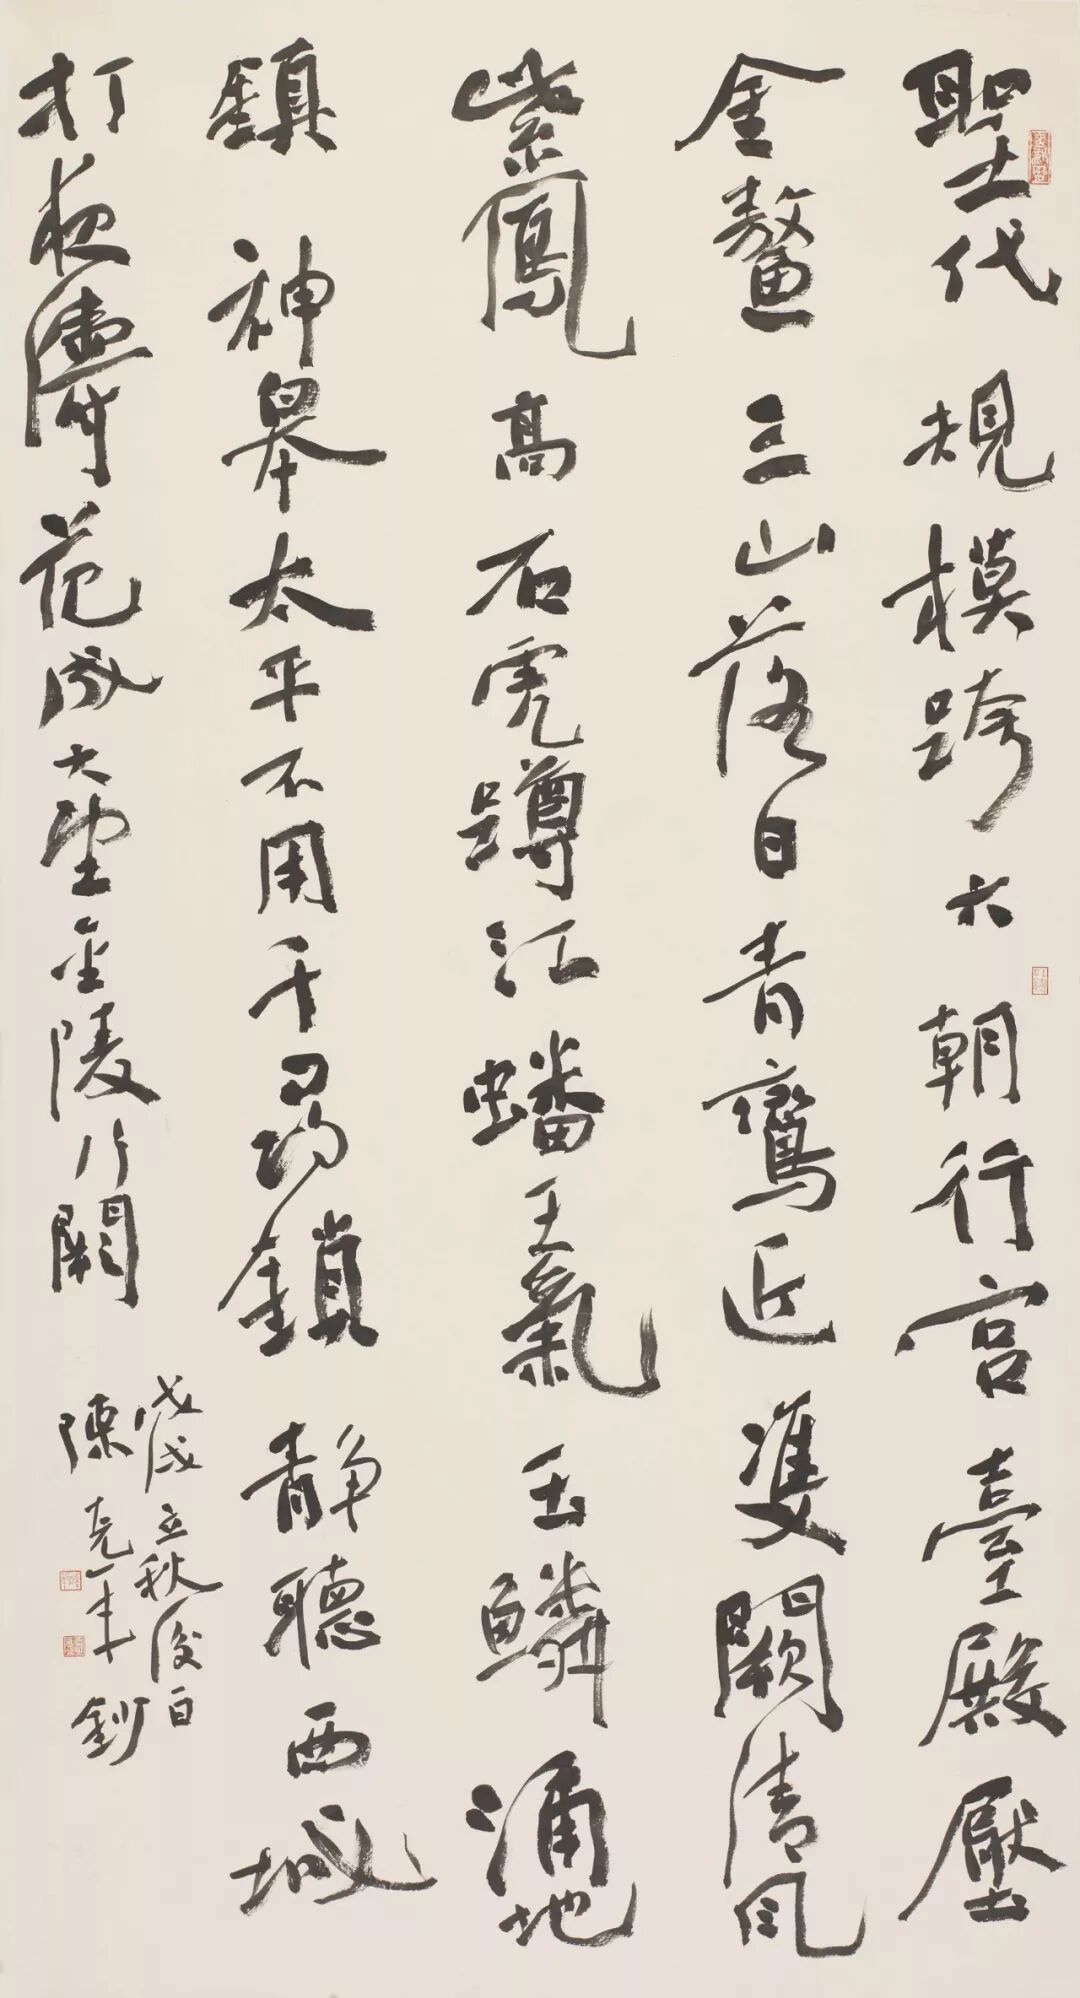 聖代規模跨六朝行宫臺殿壓
金鰲三山落日青鸞近雙闕清風
紫鳳高石虎蹲江蟠王氣玉鱗涌地
鎮神皋太平不用千尋鎖静聽西城
打夜濤范成大望金陵行闕
戊戌立秋後一日
陳克年鈔